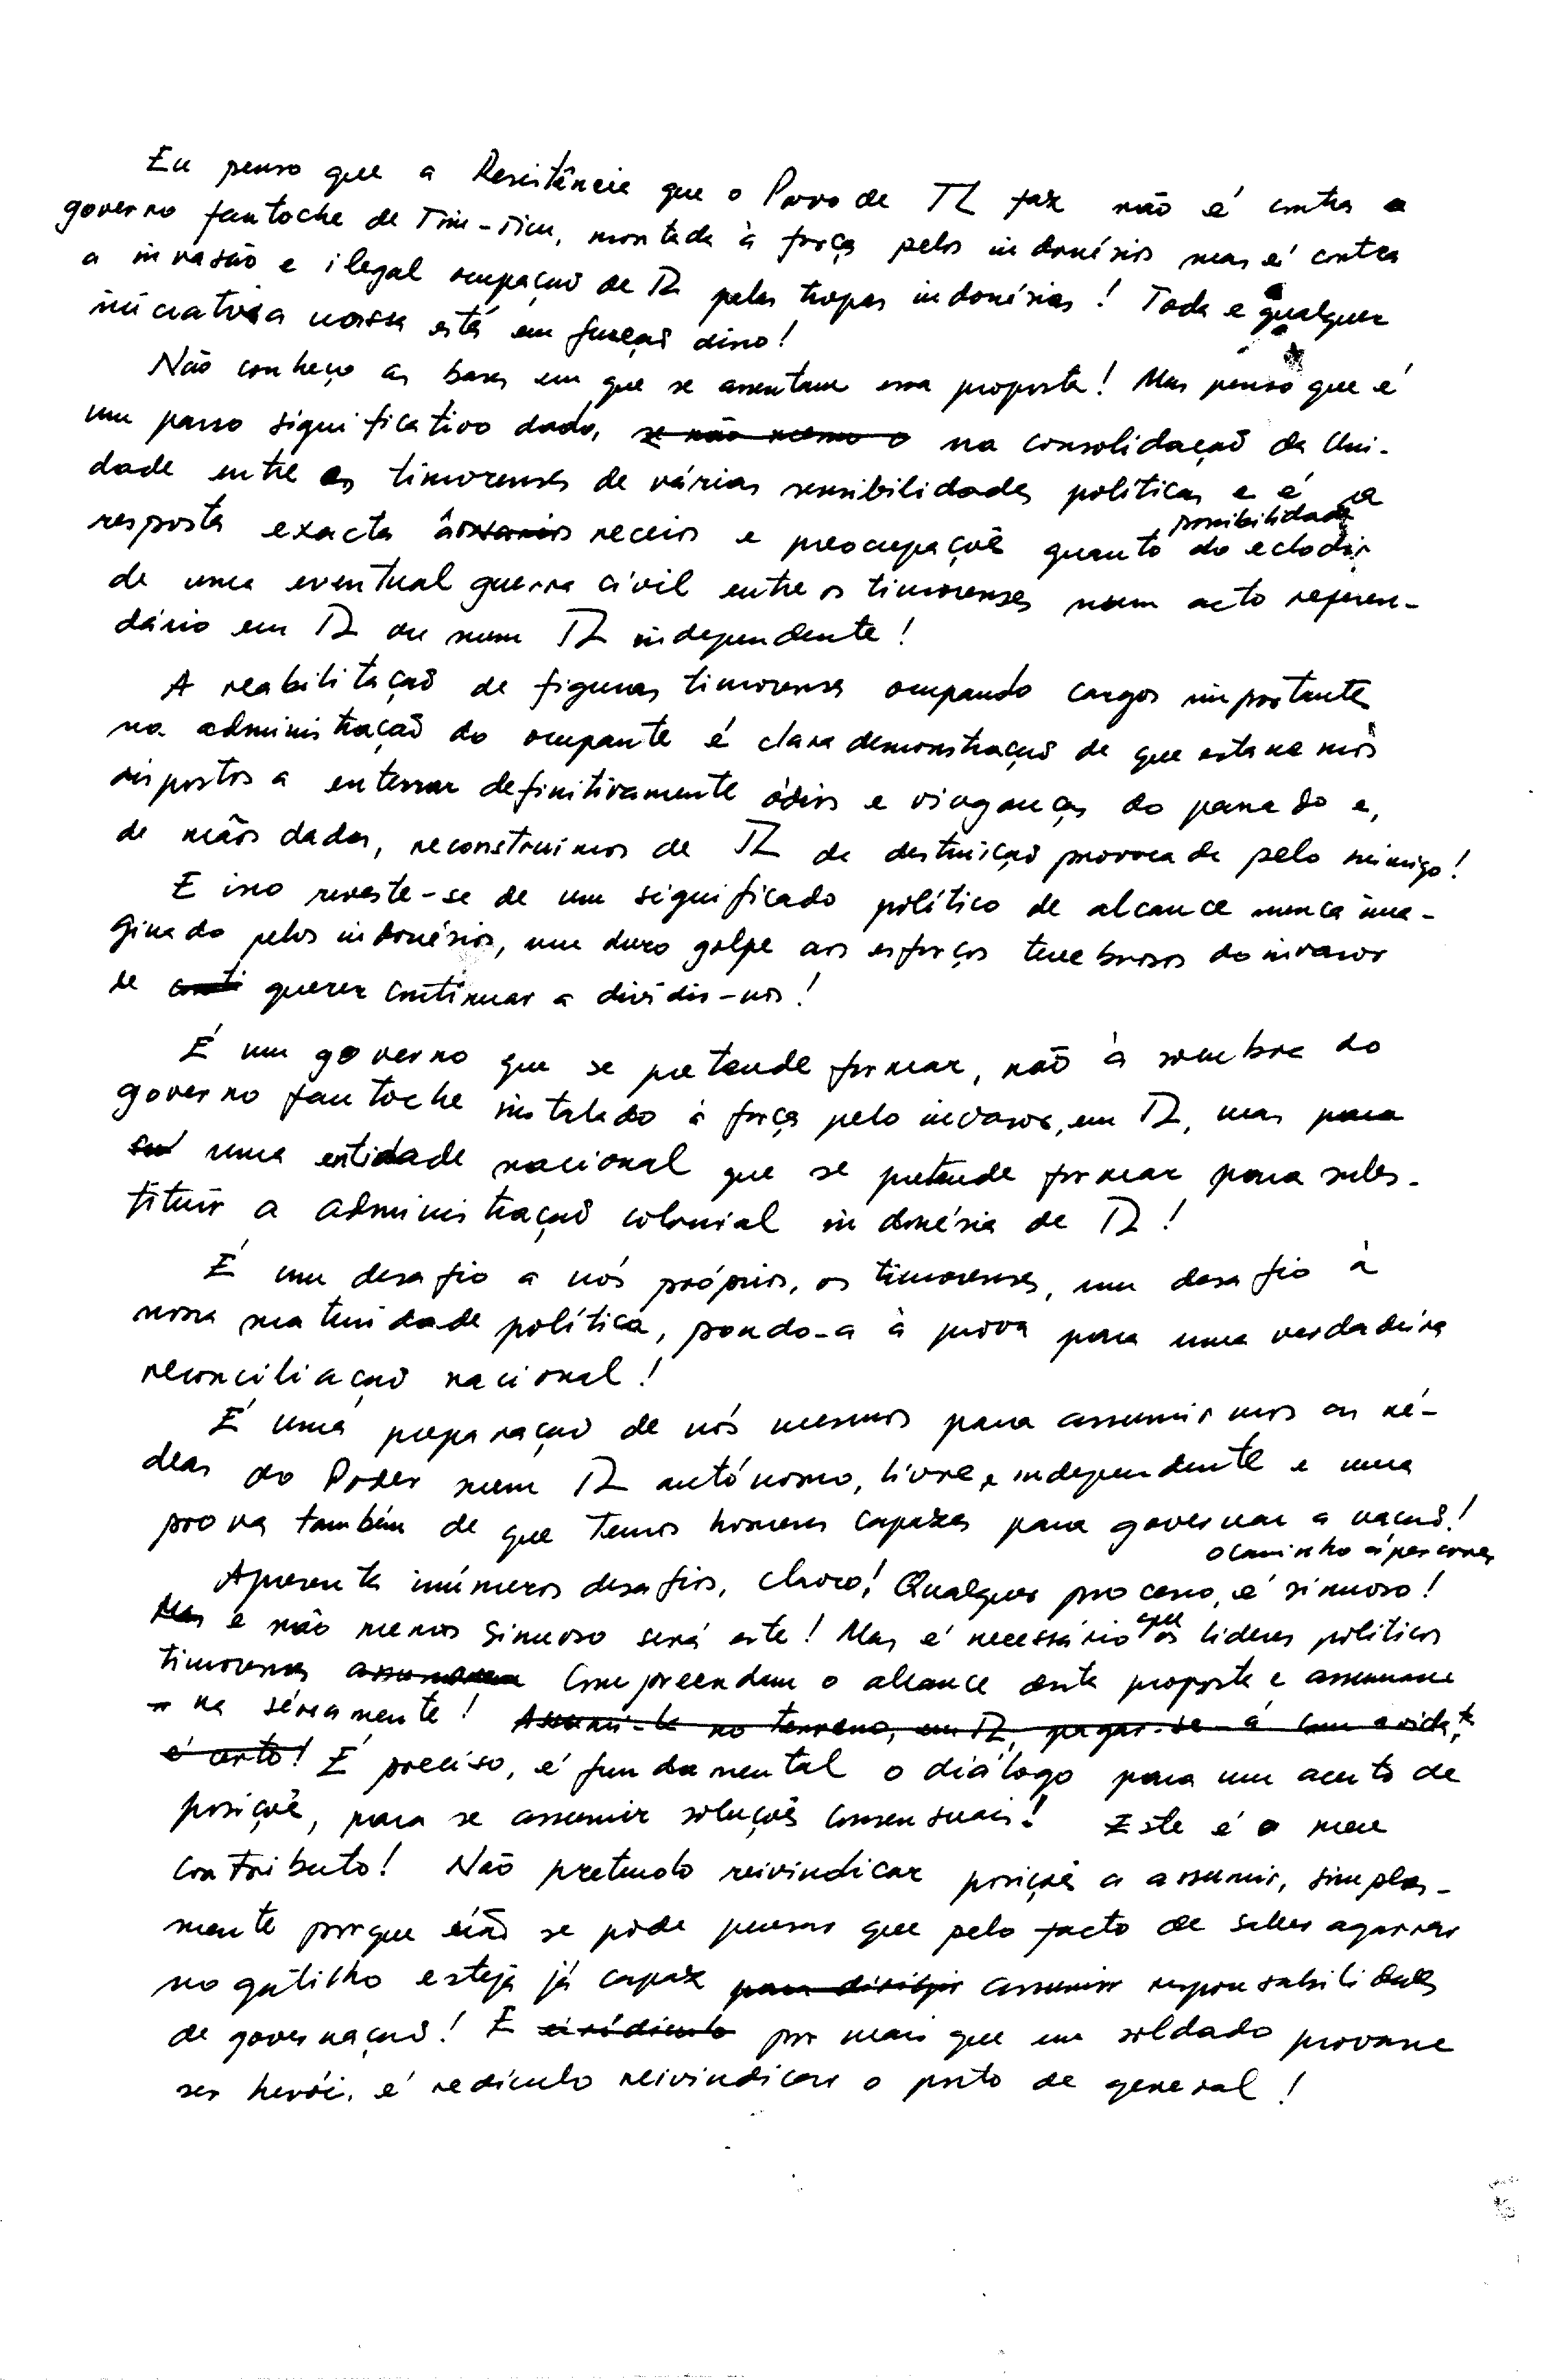 Eu penso que a Resistência que o Povo de TL faz não é contra o
governo fantoche de Tim-Tim, montado à força pelos indonésios mas é contra
a invasão e ilegal ocupação de TL pelas tropas indonésias! Toda e qualquer
iniciativa nossa está em função disso!
Não conheço as bases em que se assentam essa proposta! Mas penso que é
um passo significativo dado, se não mesmo o na consolidação da Uni-
dade entre os timorenses de várias sensibilidades políticas e é a
possibilidade
resposta exacta aos receios e preocupações quanto do eclodir
de uma eventual guerra civil entre os timorenses num acto referen-
dário em TL ou num TL independente!
A reabilitação de figuras timorenses ocupando cargos importantes
na administração do ocupante é clara demonstração de que estaremos
dispostos a enterrar definitivamente ódios e vinganças do passado e,
de mãos dadas, reconstruirmos de TL da destruição provocada pelo inimigo!
E isso reveste-se de um significado político de alcance nunca ima-
ginado pelos indonésios, um duro golpe aos esforços tenebrosos do invasor
de conti querer continuar a dividir-nos!
É um governo que se pretende formar, não à sombra do
governo fantoche instalado à força pelo invasor, em TL, mas para
ser uma entidade nacional que se pretende formar para subs-
tituir a administração colonial indonésia de TL!
É um desafio a nós próprios, os timorenses, um desafio à
nossa maturidade política, pondo-a à prova para uma verdadeira
reconciliação nacional!
É uma preparação de nós mesmos para assumirmos as ré-
deas do Poder num TL autónomo, livre e independente e uma
prova também de que temos homens capazes para governar a nação!
o caminho a percorrer
Apresenta inúmeros desafios, claro! Qualquer processo, é sinuoso!
Mas e não menos sinuoso será este! Mas é necessário que os líderes políticos
timorenses assumam compreendam o alcance desta proposta e assumam
-na sériamente! Assumi-la no terreno, em TL, pagar-se-á com a vida,
é certo! É preciso, é fundamental o diálogo para um acerto de
posições, para se assumir soluções consensuais! Este é o meu
contributo! Não pretendo reivindicar posições a assumir, simples-
mente porque não se pode pensar que pelo facto de saber agarrar
no gatilho esteja já capaz para dirigir assumir responsabilidades
de governação! E é ridículo por mais que um soldado provasse
ser herói, é redículo reivindicar o posto de general!